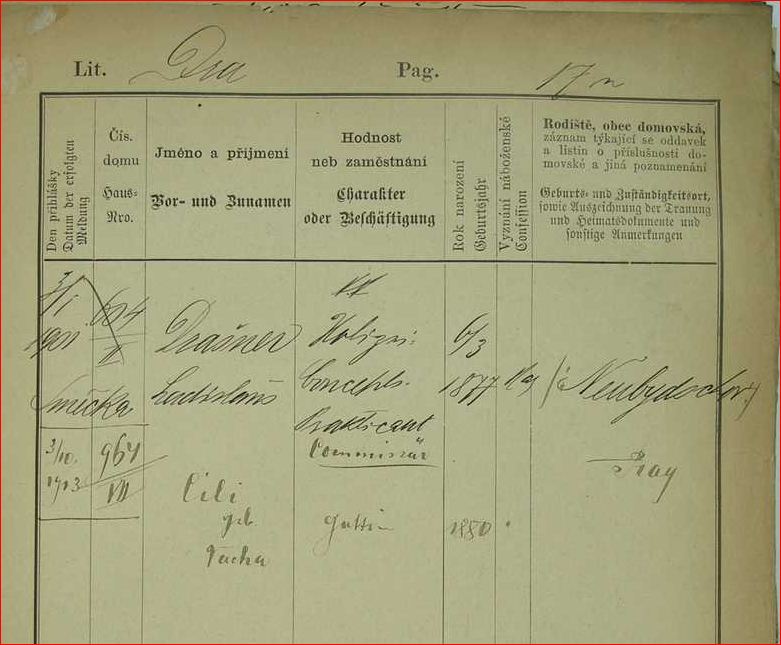 Lit. Dra Pag. 17
Den přihlášky
Datum der erfolgten
Meldung
Čís.
domu
Haus-
Nro.
Jméno a přijmení
Vor- und Zunamen
Hodnost
neb zaměstnání
Charakter
oder Beschäftigung
Rok narození
Geburtsjahr
Vyznání náboženské
Confession
Rodiště, obec domovská,
záznam týkající se oddavek
a listin o příslušnosti do-
movské a jiná poznamenání
Geburts- und Zuständigkeitsort,
sowie Auszeichnung der Trauung
und Heimatsdokumente und
sonstige Anmerkungen
3/1 604 kk
1901 II Drašner Polizei- 6/3
Smečka Ladislaus Concepts- 1877 Kat Neubydschov
Prakticant
3/10. 961 Commissär
1913 VII Prag
Cili
geb. Gattin 1880
Pacha